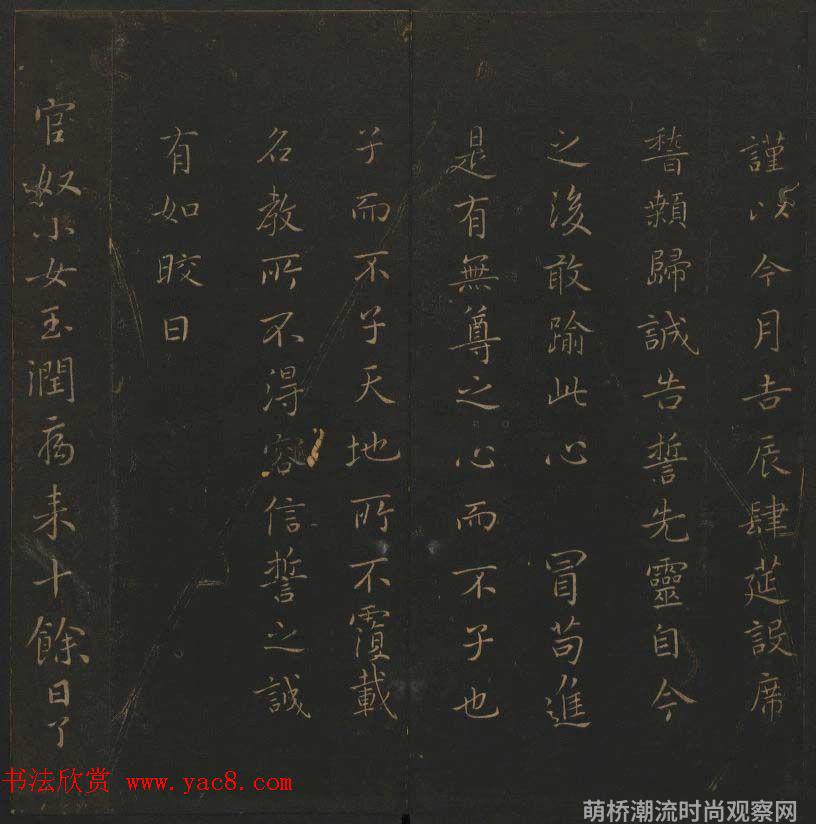 謹以今月吉辰肆莚設席
稽顙歸誠告誓先靈自今
之後敢踰此心 冒苟進
是有無尊之心而不子也
子而不子天地所不覆載
名教所不得容信誓之誠
有如皎日
官奴小女玉潤病来十餘日了
书法欣赏 www.yac8.com
萌桥潮流时尚观察网